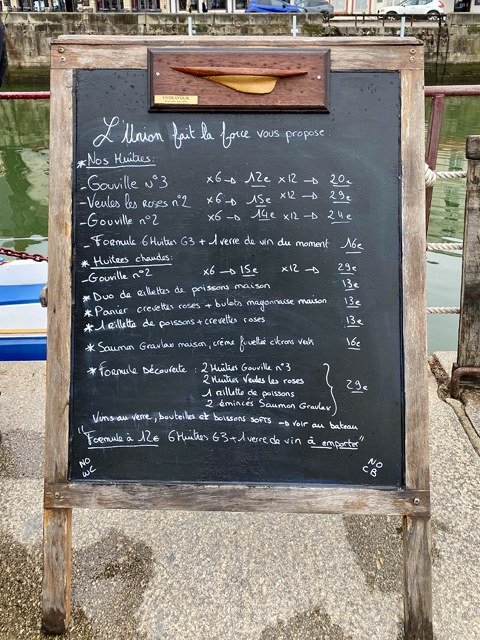 ENDEAVOUR
L'Union fait la force vous propose :
* Nos Huîtres :
- Gouville N°3 x6 → 12e x12 → 20e
- Veules les Roses n°2 x6 → 15e x12 → 29e
- Gouville n°2 x6 → 14e x12 → 24e
- Formule 6 Huîtres G3 + 1 verre de vin du moment 16e
* Huitres chaudes :
- Gouville n°2 x6 → 15e x12 → 29e
* Duo de rillettes de poissons maison 13e
* Panier crevettes roses + bulots mayonnaise maison 13e
* 1 rillette de poissons + crevettes roses 13e
* Saumon Gravlax maison, crème ficelles citrons verts 16e
* Formule Découverte : 2 Huîtres Gouville n°3
2 Huîtres Veules les roses
1 rillette de poissons
2 émincés Saumon Gravlax
29e
Vins au verre, bouteilles et boissons softs → voir au bateau
"Formule à 12e 6 Huîtres G3 + 1 verre de vin à emporter"
NO WC
NO CB